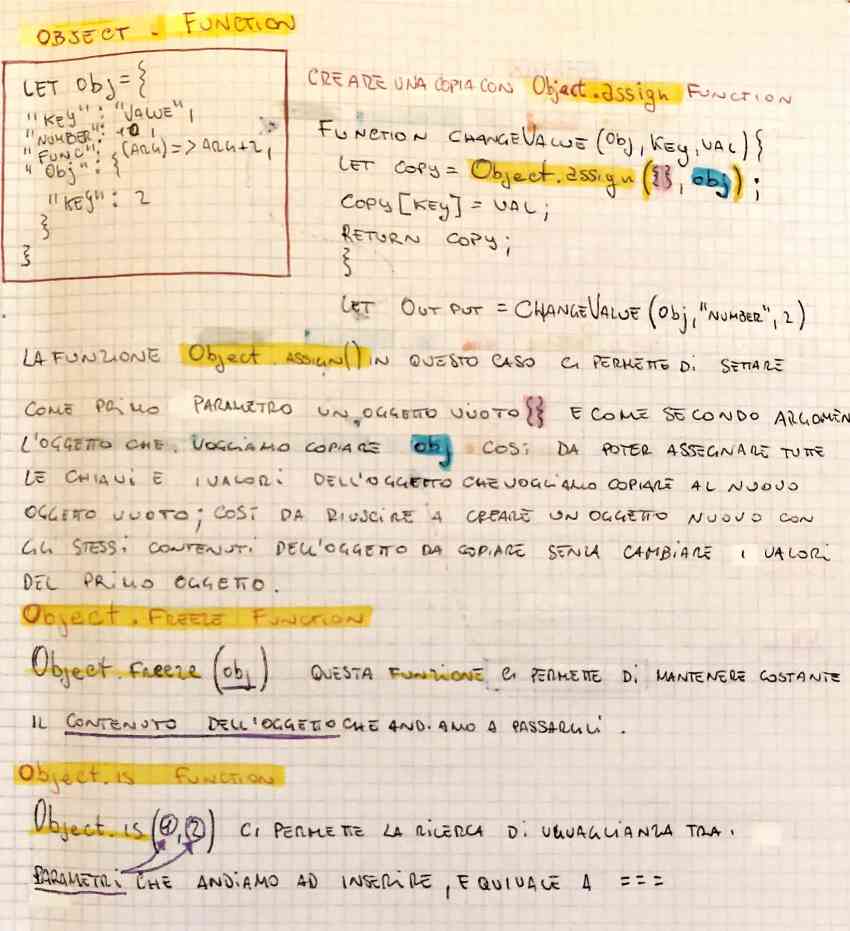 OBJECT . FUNCTION
LET Obj = {
"KEY": "VALUE",
"NUMBER": 10,
"FUNC": (ARG) => ARG+2,
"Obj": {
"KEY": 2
}
}
CREARE UNA COPIA CON Object.assign FUNCTION
FUNCTION CHANGEVALUE (Obj, KEY, VAL) {
LET COPY = Object.assign ({}, obj);
COPY [KEY] = VAL;
RETURN COPY;
}
LET OUTPUT = CHANGEVALUE (Obj, "NUMBER", 2)
LA FUNZIONE Object.ASSIGN() IN QUESTO CASO CI PERMETTE DI SETTARE
COME PRIMO PARAMETRO UN OGGETTO VUOTO {} E COME SECONDO ARGOMEN
L'OGGETTO CHE VOGLIAMO COPIARE obj COSÌ DA POTER ASSEGNARE TUTTE
LE CHIAVI E I VALORI DELL'OGGETTO CHE VOGLIAMO COPIARE AL NUOVO
OGGETTO VUOTO; COSÌ DA RIUSCIRE A CREARE UN OGGETTO NUOVO CON
GLI STESSI CONTENUTI DELL'OGGETTO DA COPIARE SENZA CAMBIARE I VALORI
DEL PRIMO OGGETTO.
Object.FREEZE FUNCTION
Object.Freeze (obj) QUESTA FUNZIONE CI PERMETTE DI MANTENERE COSTANTE
IL CONTENUTO DELL'OGGETTO CHE ANDIAMO A PASSARGLI.
Object.is FUNCTION
Object.is (1,2) CI PERMETTE LA RICERCA DI UGUAGLIANZA TRA I
PARAMETRI CHE ANDIAMO AD INSERIRE, EQUIVALE A ===